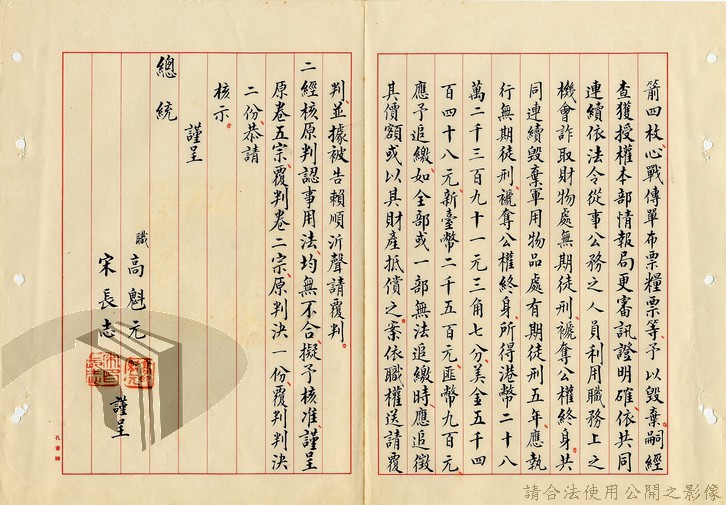 箭四枚心戰傳單布票糧票等予以毀棄嗣經
查獲授權本部情報局更審訊證明確依共同
連續依法令從事公務之人員利用職務上之
機會詐取財物處無期徒刑褫奪公權終身共
同連續毀棄軍用物品處有期徒刑五年應執
行無期徒刑褫奪公權終身所得港幣二十八
萬二千三百九十一元三角七分美金五千四
百四十八元新臺幣二千五百元匪幣九百元
應予追繳如全部或一部無法追繳時應追徵
其價額或以其財產抵償之案依職權送請覆
判並據被告賴順沂聲請覆判
二經核原判認事用法均無不合擬予核准謹呈
原卷五宗覆判卷二宗原判決一份覆判判決
二份恭請
核示。
謹呈
總統
職 高魁元
宋長志 謹呈
請合法使用公開之影像